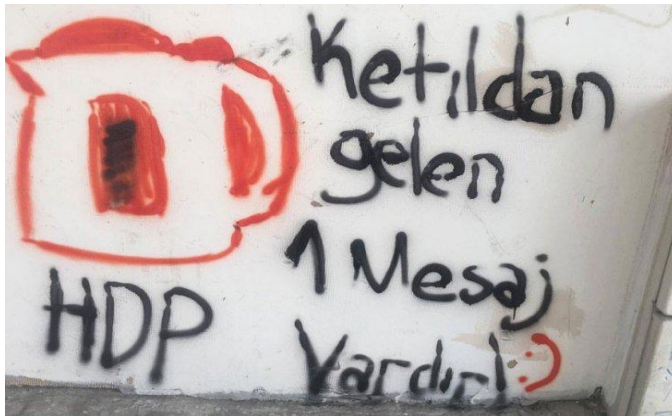 Ketıldan
gelen
1 Mesaj
Vardır! :)
HDP